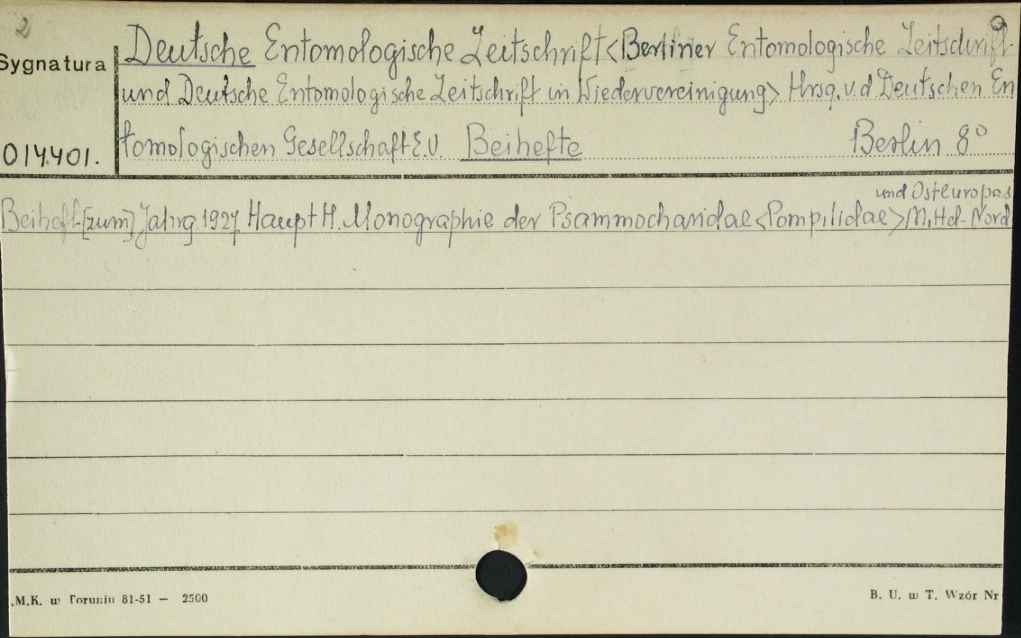 2
Sygnatura
014401.
Deutsche Entomologische Zeitschrift <Berliner Entomologische Zeitschrift
und Deutsche Entomologische Zeitschrift in Wiedervereinigung> Hrsg. v. d Deutschen En
tomologischen Gesellschaft E.V. Beihefte Berlin 8°
und Osteuropas
Beiheft [zum] Jahrg 1927 Haupt H. Monographie der Psammocharidae <Pompilidae> M, Hd- Nord
.M.K. w Toruniu 81-51 — 2500
B. U. w T. Wzór Nr